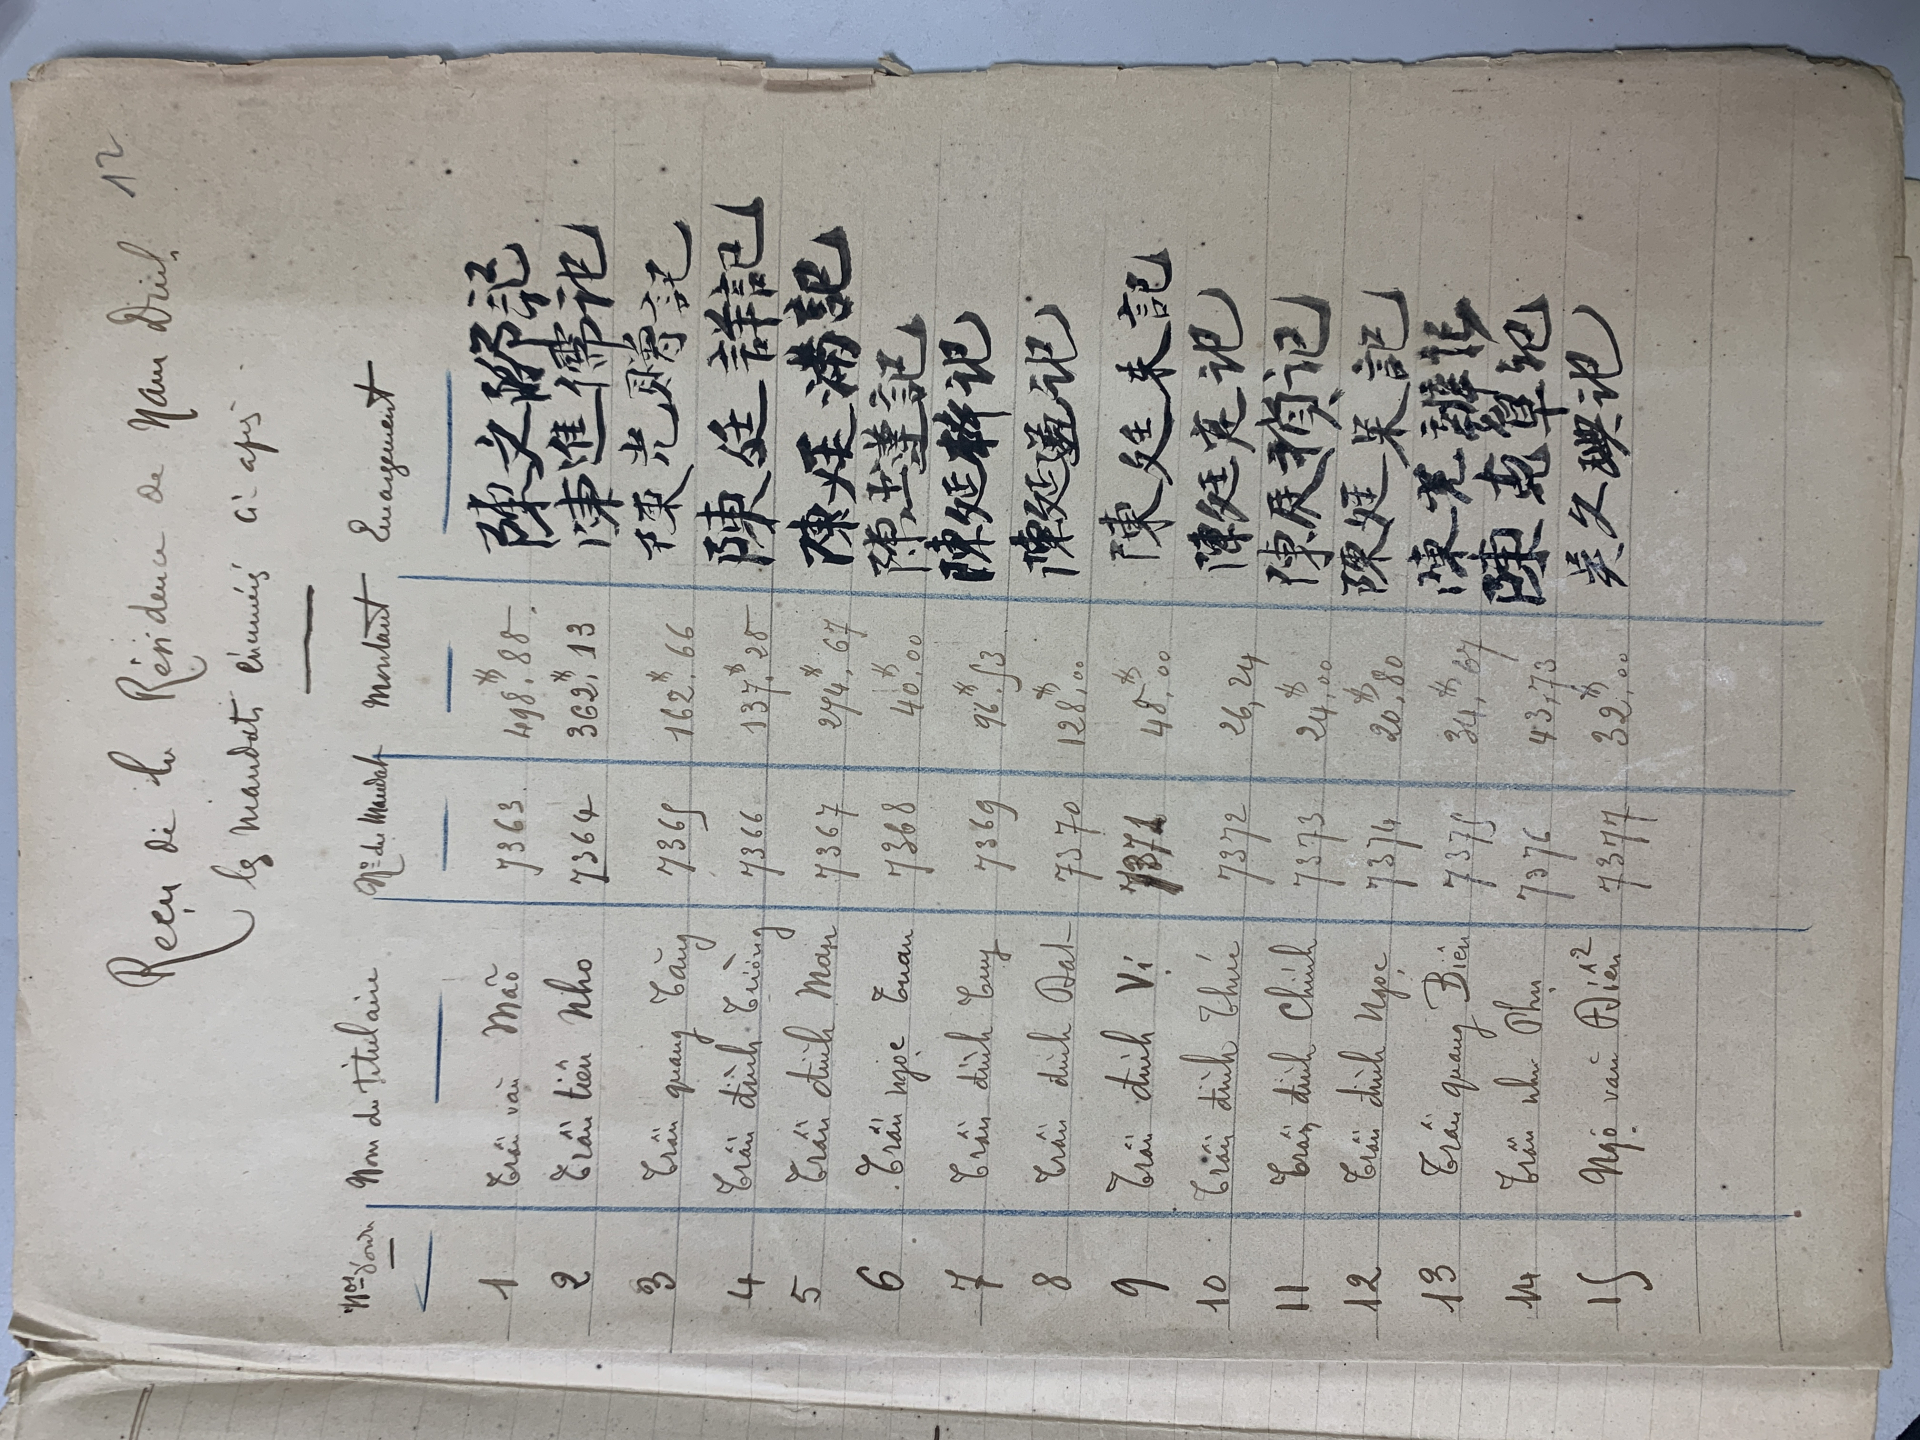 12
Reçu de la Résidence de Nam Dinh
les mandats énumérés ci-après
Nos d'ordre Nom du titulaire Nos des Mandats Montant Emargement
1 Trần văn Mão 7363 498$,88 陳文卯記
2 Trần tiến Nho 7364 362$,13 陳進儒記
3 Trần quang Tằng 7365 162$,66 陳光贈記
4 Trần đình Tường 7366 137$,28 陳廷詳記
5 Trần đình Mãn 7367 274$,67 陳廷滿記
6 Trần ngọc Tuân 7368 40$,00 陳玉遵記
7 Trần đình Tung 7369 96$,53 陳廷記
8 Trần đình Đạt 7370 128$,00 陳廷記
9 Trần đình Vị 7371 48$,00 陳廷未記
10 Trần đình Thúc 7372 26,24 陳廷記
11 Trần đình Chinh 7373 24$,00 陳廷記
12 Trần đình Ngọc 7374 20$,80 陳廷記
13 Trần quang Biên 7375 34$,67 陳光記
14 Trần như Phụ 7376 43,73 陳記
15 Ngô văn Điến 7377 32$,00 吳文記